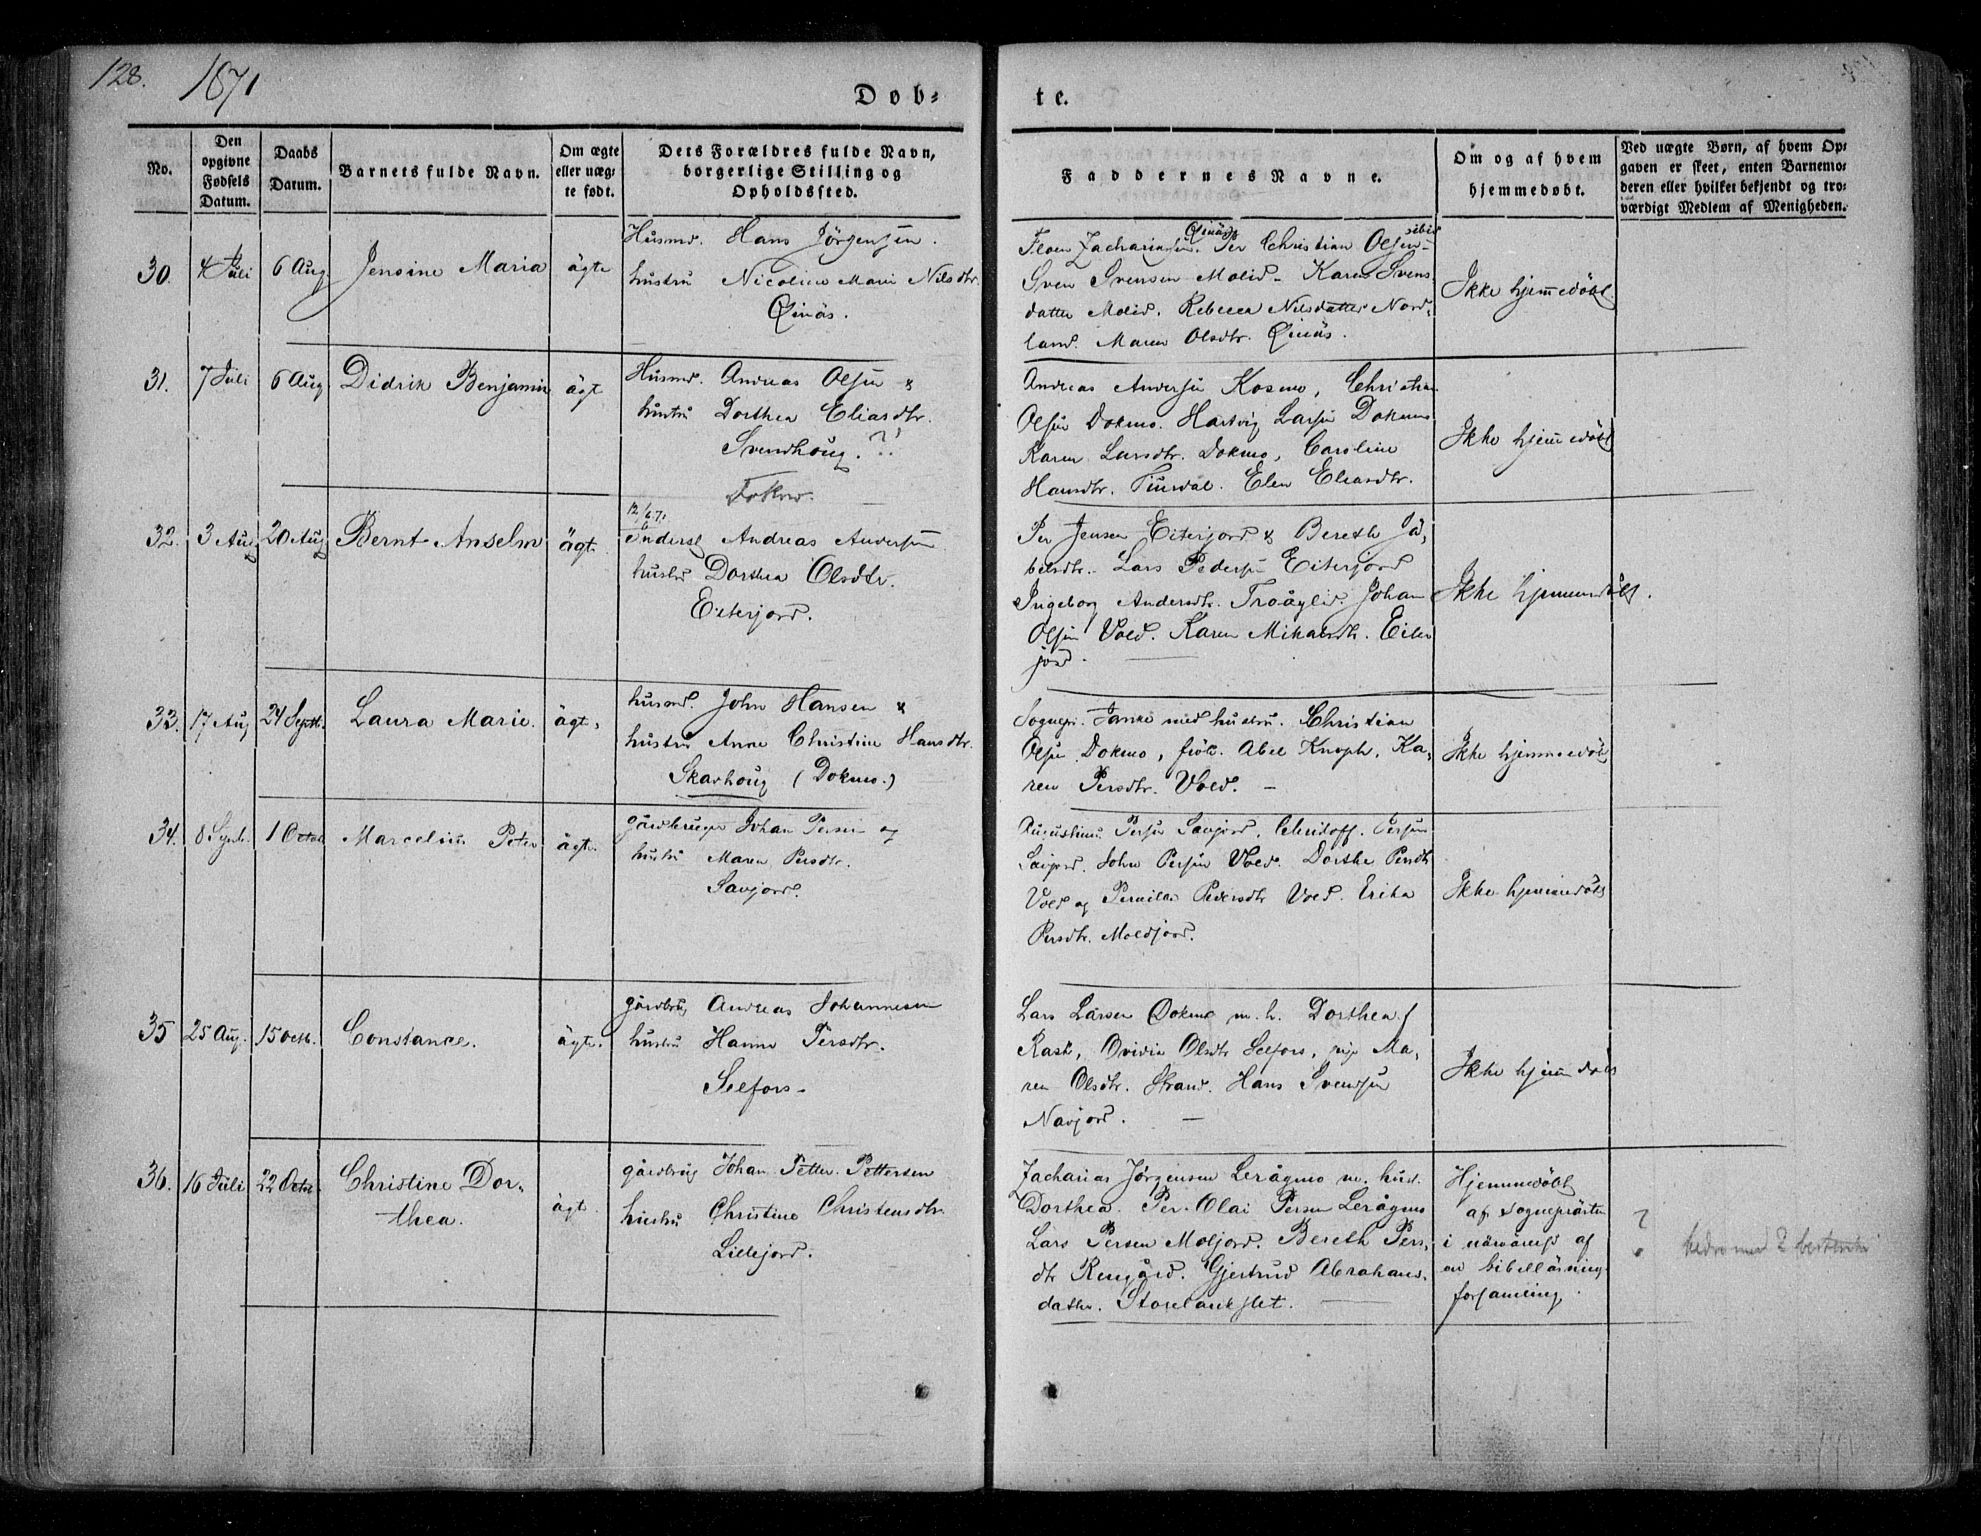 128.
1871
Døb-
te.
No.
Den opgivne Fødsels Datum.
Daabs Datum.
Barnets fulde Navn.
Om ægte eller uæg- te født.
Dets Forældres fulde Navn, borgerlige Stilling og Opholdssted.
Faddernes Navne.
Om og af hvem hjemmedøbt.
Ved uægte Børn, af hvem Op- gaven er skeet, enten Barnemo- deren eller hvilket bekjendt og tro- værdigt Medlem af Menigheden.
30. 4 Juli 6 Aug Jensine Maria ägte
Husmd. Hans Jörgensen.
hustru Nicoline Marie Nilsdtr.
Per Christian Olsen
Sven Svensen Molid - Karen Svens
datter Molid. Rebecca Nilsdatter Nord-
land. Maren Olsdtr.
Ikke hjemmedöbt
31. 7 Juli 6 Aug Didrik Benjamin ägt
Husmd. Andreas Olsen &
hustru Dorthea Eliasdtr.
Svendhoug. ?!
Andreas Andersen Kosmo, Christian
Olsen Dokmo. Hartvig Larsen Dokmo
Karen Larsdtr. Dokmo, Caroline
Hansdtr. Elen Eliasdtr.
Ikke hjemmedöbt
32. 3 Aug 20 Aug Bernt Anselm ägt.
Andreas Andersen
hustru Dorthea Olsdtr.
Eiterjord.
Per Jensen Eiterjord & Bereth Ja-
belsdtr. Lars Pedersen Eiterjord
Ingeborg Andersdtr. Troåglid. Johan
Olsen Vold. Karen Mikalsdtr. Eiter
jord.
Ikke hjemmedöbt.
33. 17 Aug 24 Septb. Laura Marie. ägt.
husmd. John Hansen &
hustru Anne Christine Hansdtr.
Skarhoug (Dokmo.)
Sognepr. med hustru. Christian
Olsen Dokmo, frök. Abel Knoph, Ka-
ren Persdtr. Vold. -
Ikke hjemmedöbt
34. 8 Septb. 1 Octob Marcelius Peter ägt.
gårdbruger Johan Persen og
hustru Maren Persdtr.
Savjord.
Augustinus Persen Savjord, Persen
Savjord. John Persen Vold. Dorthe Persdtr
Vold og Pernilla Pedersdtr Vold. Erika
Persdtr. Moldjord.
Ikke hjemmedöbt
35 25 Aug. 15 Octb. Constance. ägte.
gårdbrug Andreas Johannesen
hustru Hanna Persdtr.
Selfors -
Lars Larsen Dokmo m. h. Dorthea f
Rask, Ovidia Olsdtr Selfors, pige Ma-
ren Olsdtr. Strand. Hans Svendsen
Navjord. -
Ikke hjemmedöbt
36. 16 Juli 22 Octob. Christine Dor-
thea. ägt.
gårdbrug Johan Petter Pettersen
hustru Christine Christensdtr.
Lillejord.
Zacharias Jörgensen Lerågmo m. hust.
Dorthea. Per Olai Persen Lerågmo
Lars Persen Moljord. Bereth Pers-
dtr Rengård. Gjertrud Abrahams-
datter.
Hjemmedöbt
af Sogneprästen
i närvärelse af
en bibelläsning-
forsamling.
?